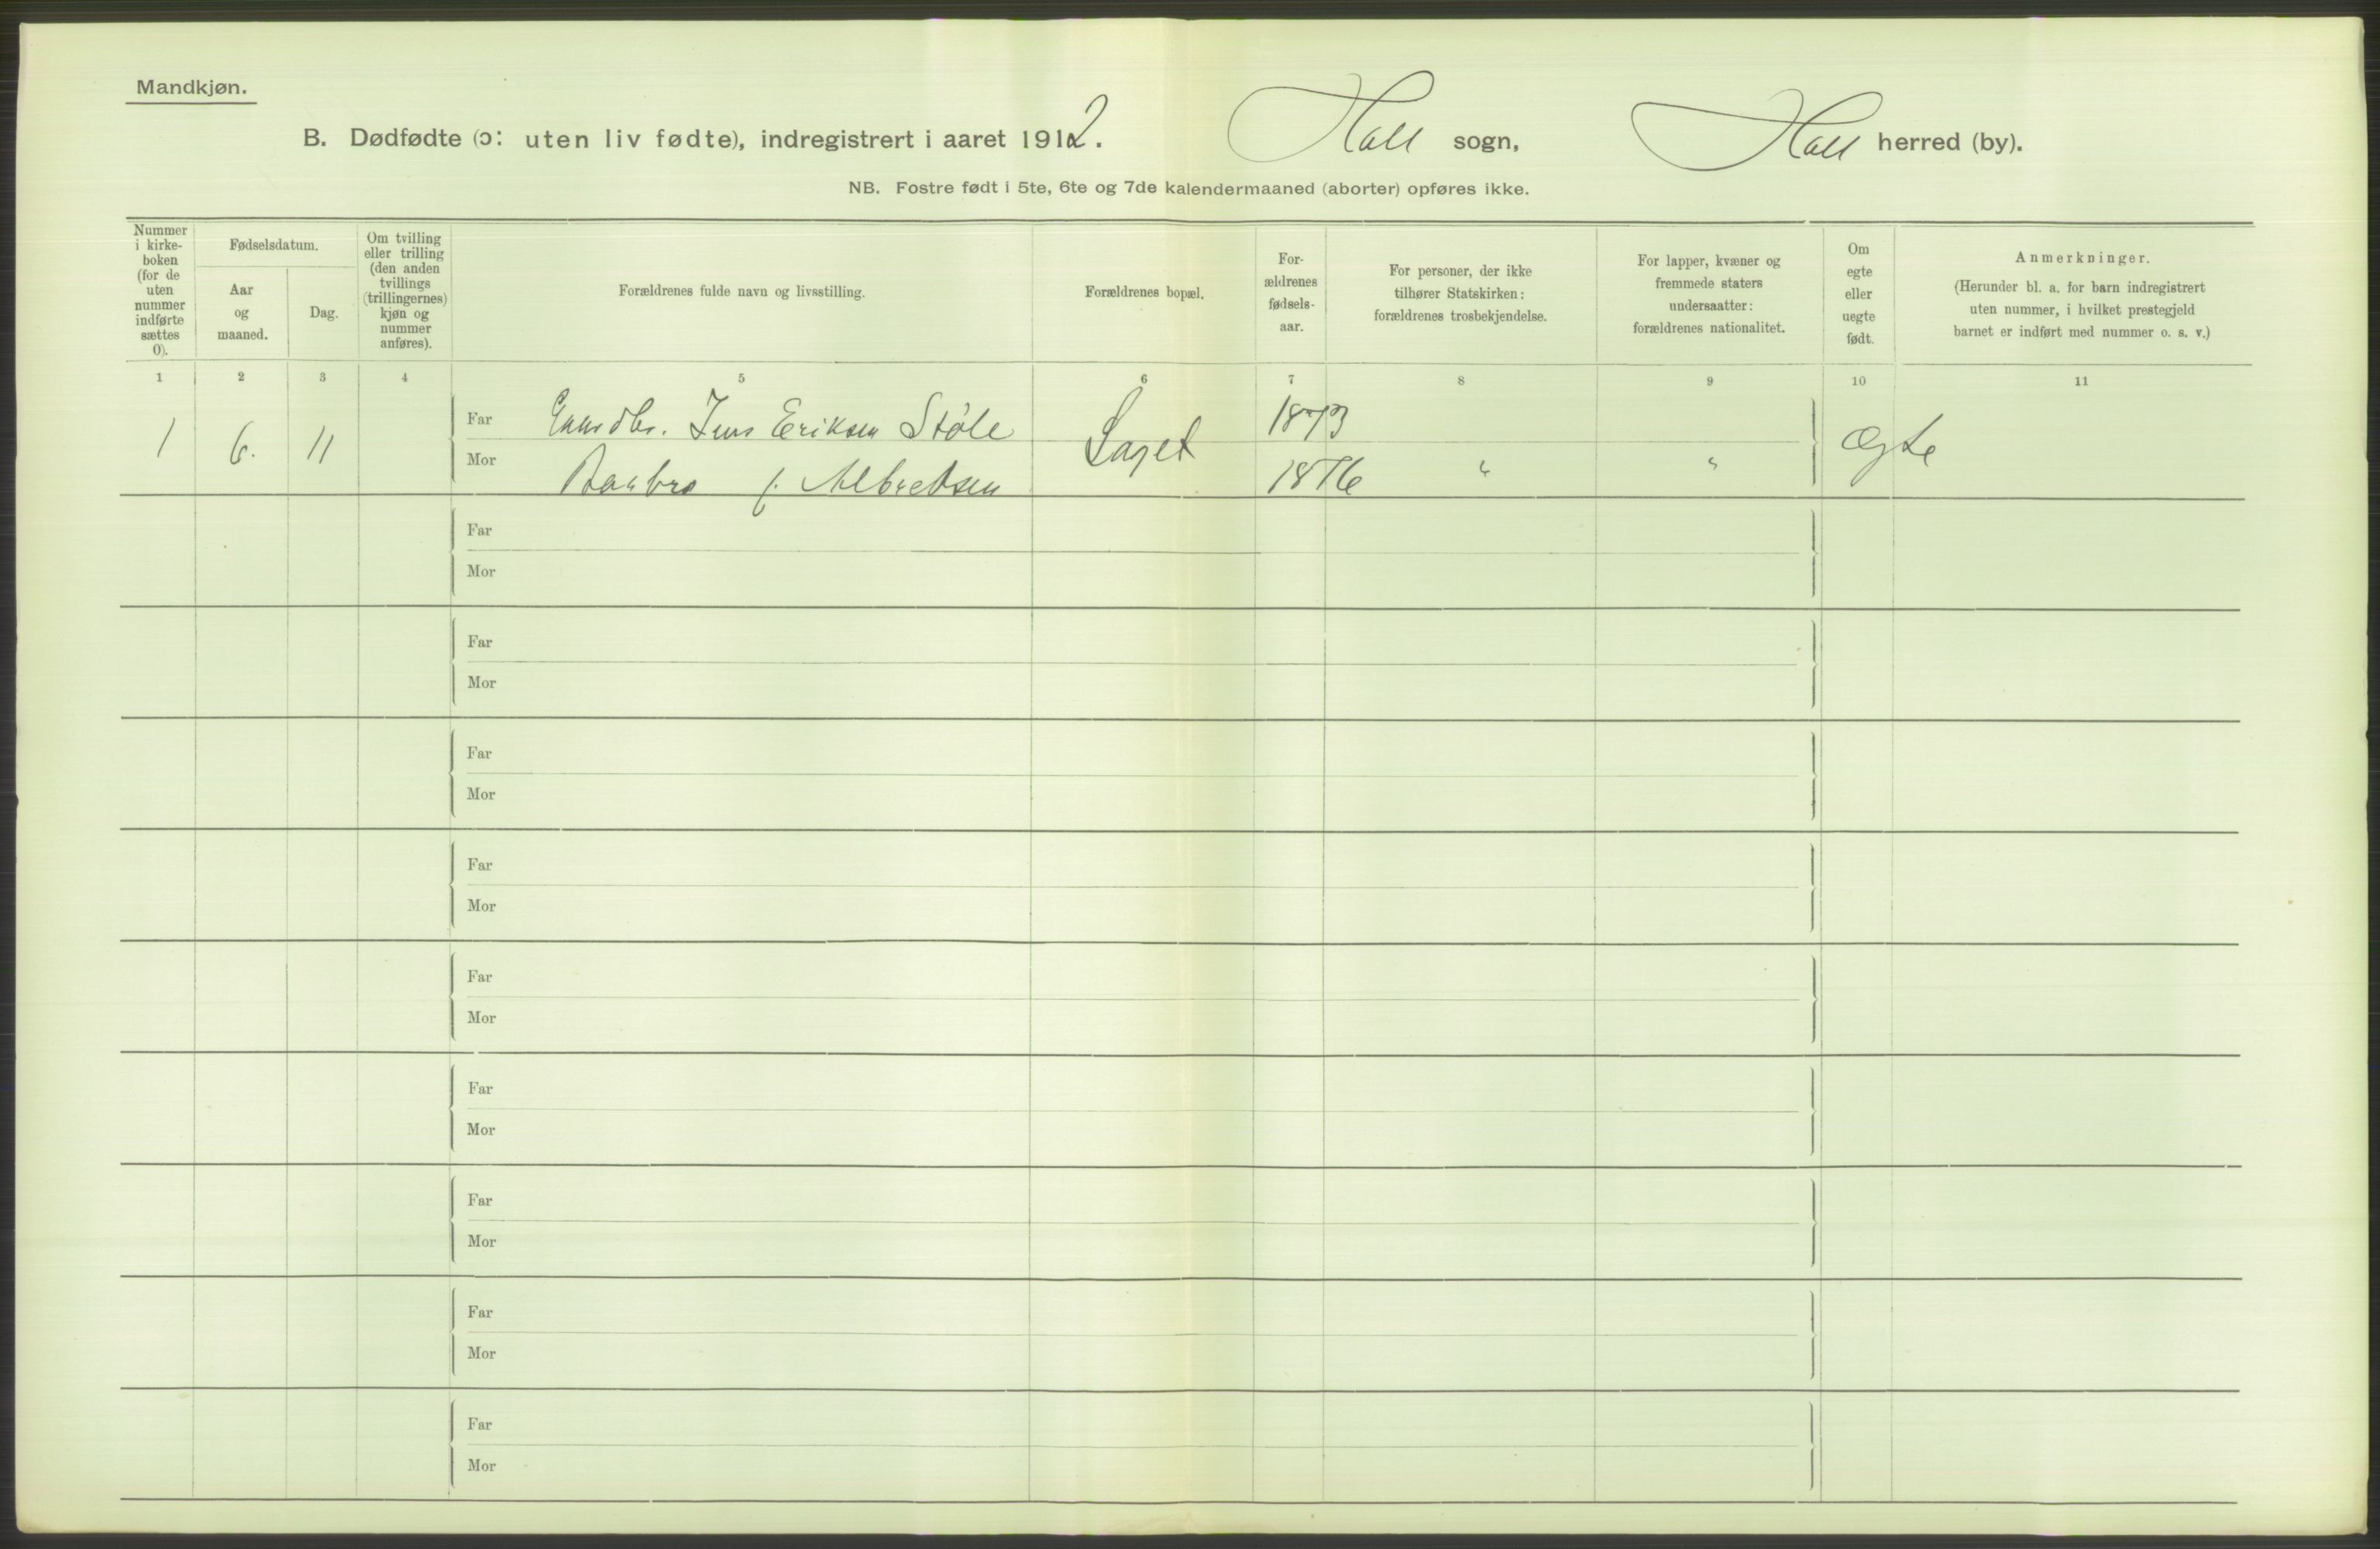 Mandkjøn.
B. Dødfødte (ɔ: uten liv fødte), indregistrert i aaret 1912. Holl sogn, Holl herred (by).
NB. Fostre født i 5te, 6te og 7de kalendermaaned (aborter) opføres ikke.
Nummer
i kirke-
boken
(for de
uten
nummer
indførte
sættes
0).
Fødselsdatum.
Aar
og
maaned.
Dag.
Om tvilling
eller trilling
(den anden
tvillings
(trillingernes)
kjøn og
nummer
anføres).
Forældrenes fulde navn og livsstilling.
Forældrenes bopæl.
For-
ældrenes
fødsels-
aar.
For personer, der ikke
tilhører Statskirken:
forældrenes trosbekjendelse.
For lapper, kvæner og
fremmede staters
undersaatter:
forældrenes nationalitet.
Om
egte
eller
uegte
født.
Anmerkninger.
(Herunder bl. a. for barn indregistrert
uten nummer, i hvilket prestegjeld
barnet er indført med nummer o. s. v.)
1 2 3 4 5 6 7 8 9 10 11
1 6. 11
Far Gaardbr. Jens Eriksen Støle 1873
Mor f. Albretsen 1876 " "
Laget
Ægte
Far
Mor
Far
Mor
Far
Mor
Far
Mor
Far
Mor
Far
Mor
Far
Mor
Far
Mor
Far
Mor